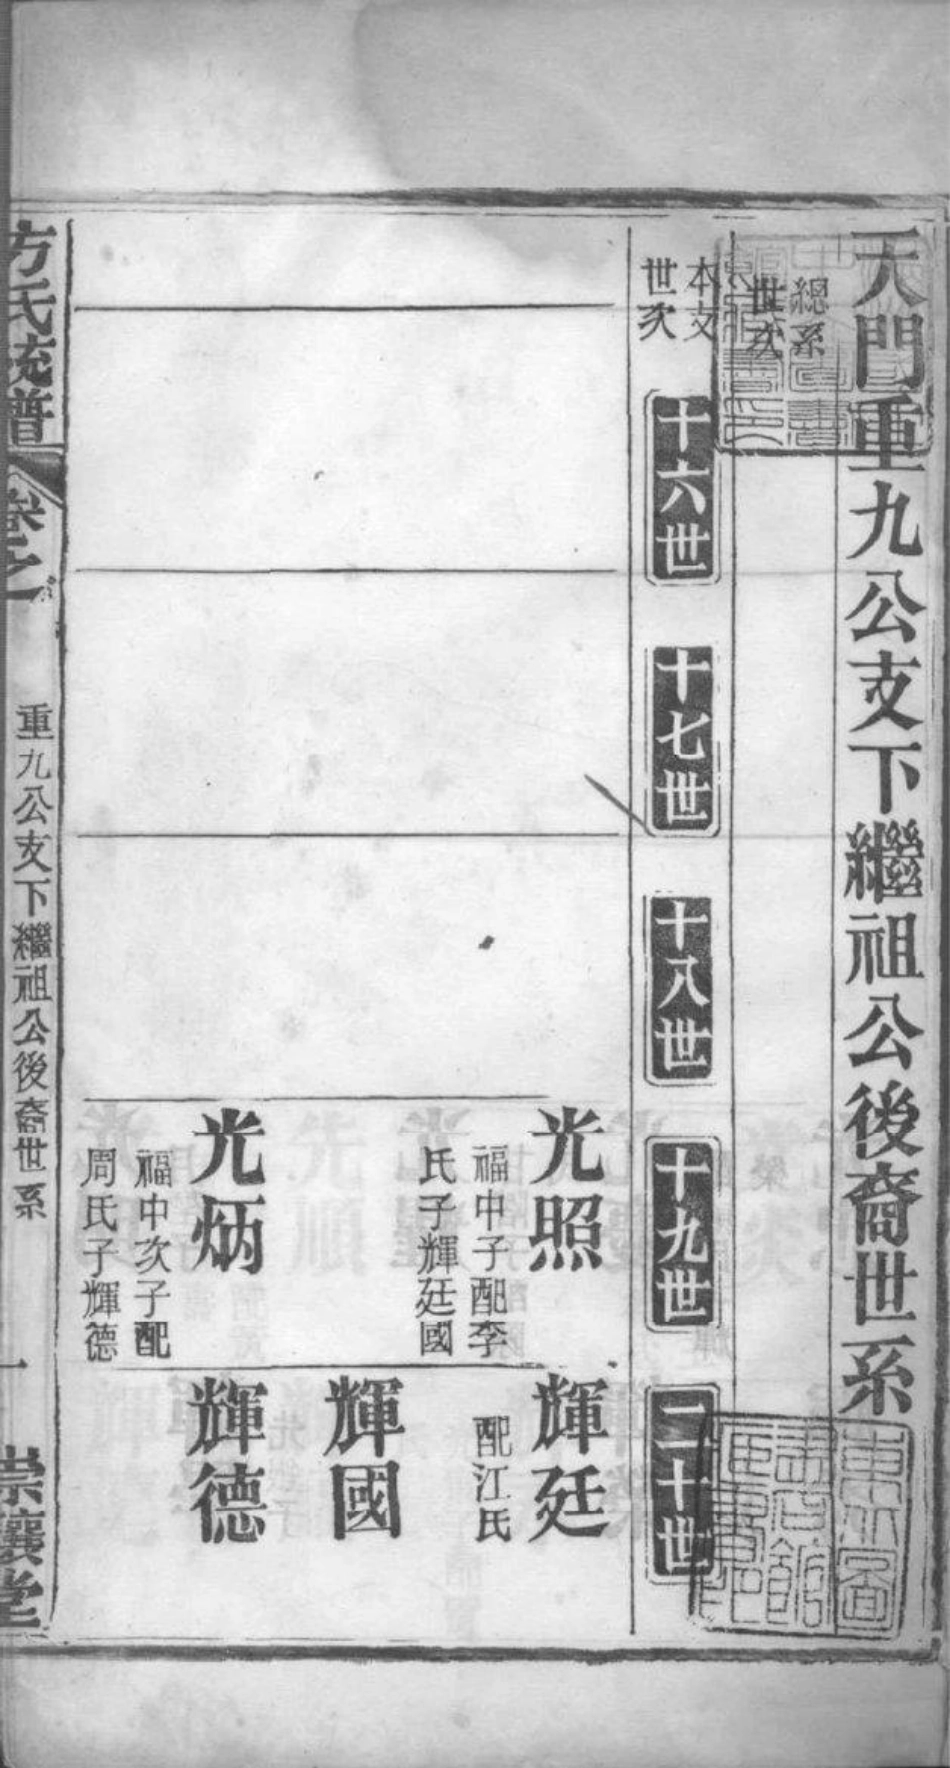 天門重九公支下繼祖公後裔世系
總系世次
本支世次
十六世
十七世
十八世
十九世
二十世
光照
福中子配李
氏子輝廷國
光炳
福中次子配
周氏子輝德
輝廷
配江氏
輝國
輝德
方氏統譜
卷之
重九公支下繼祖公後裔世系
一
堂